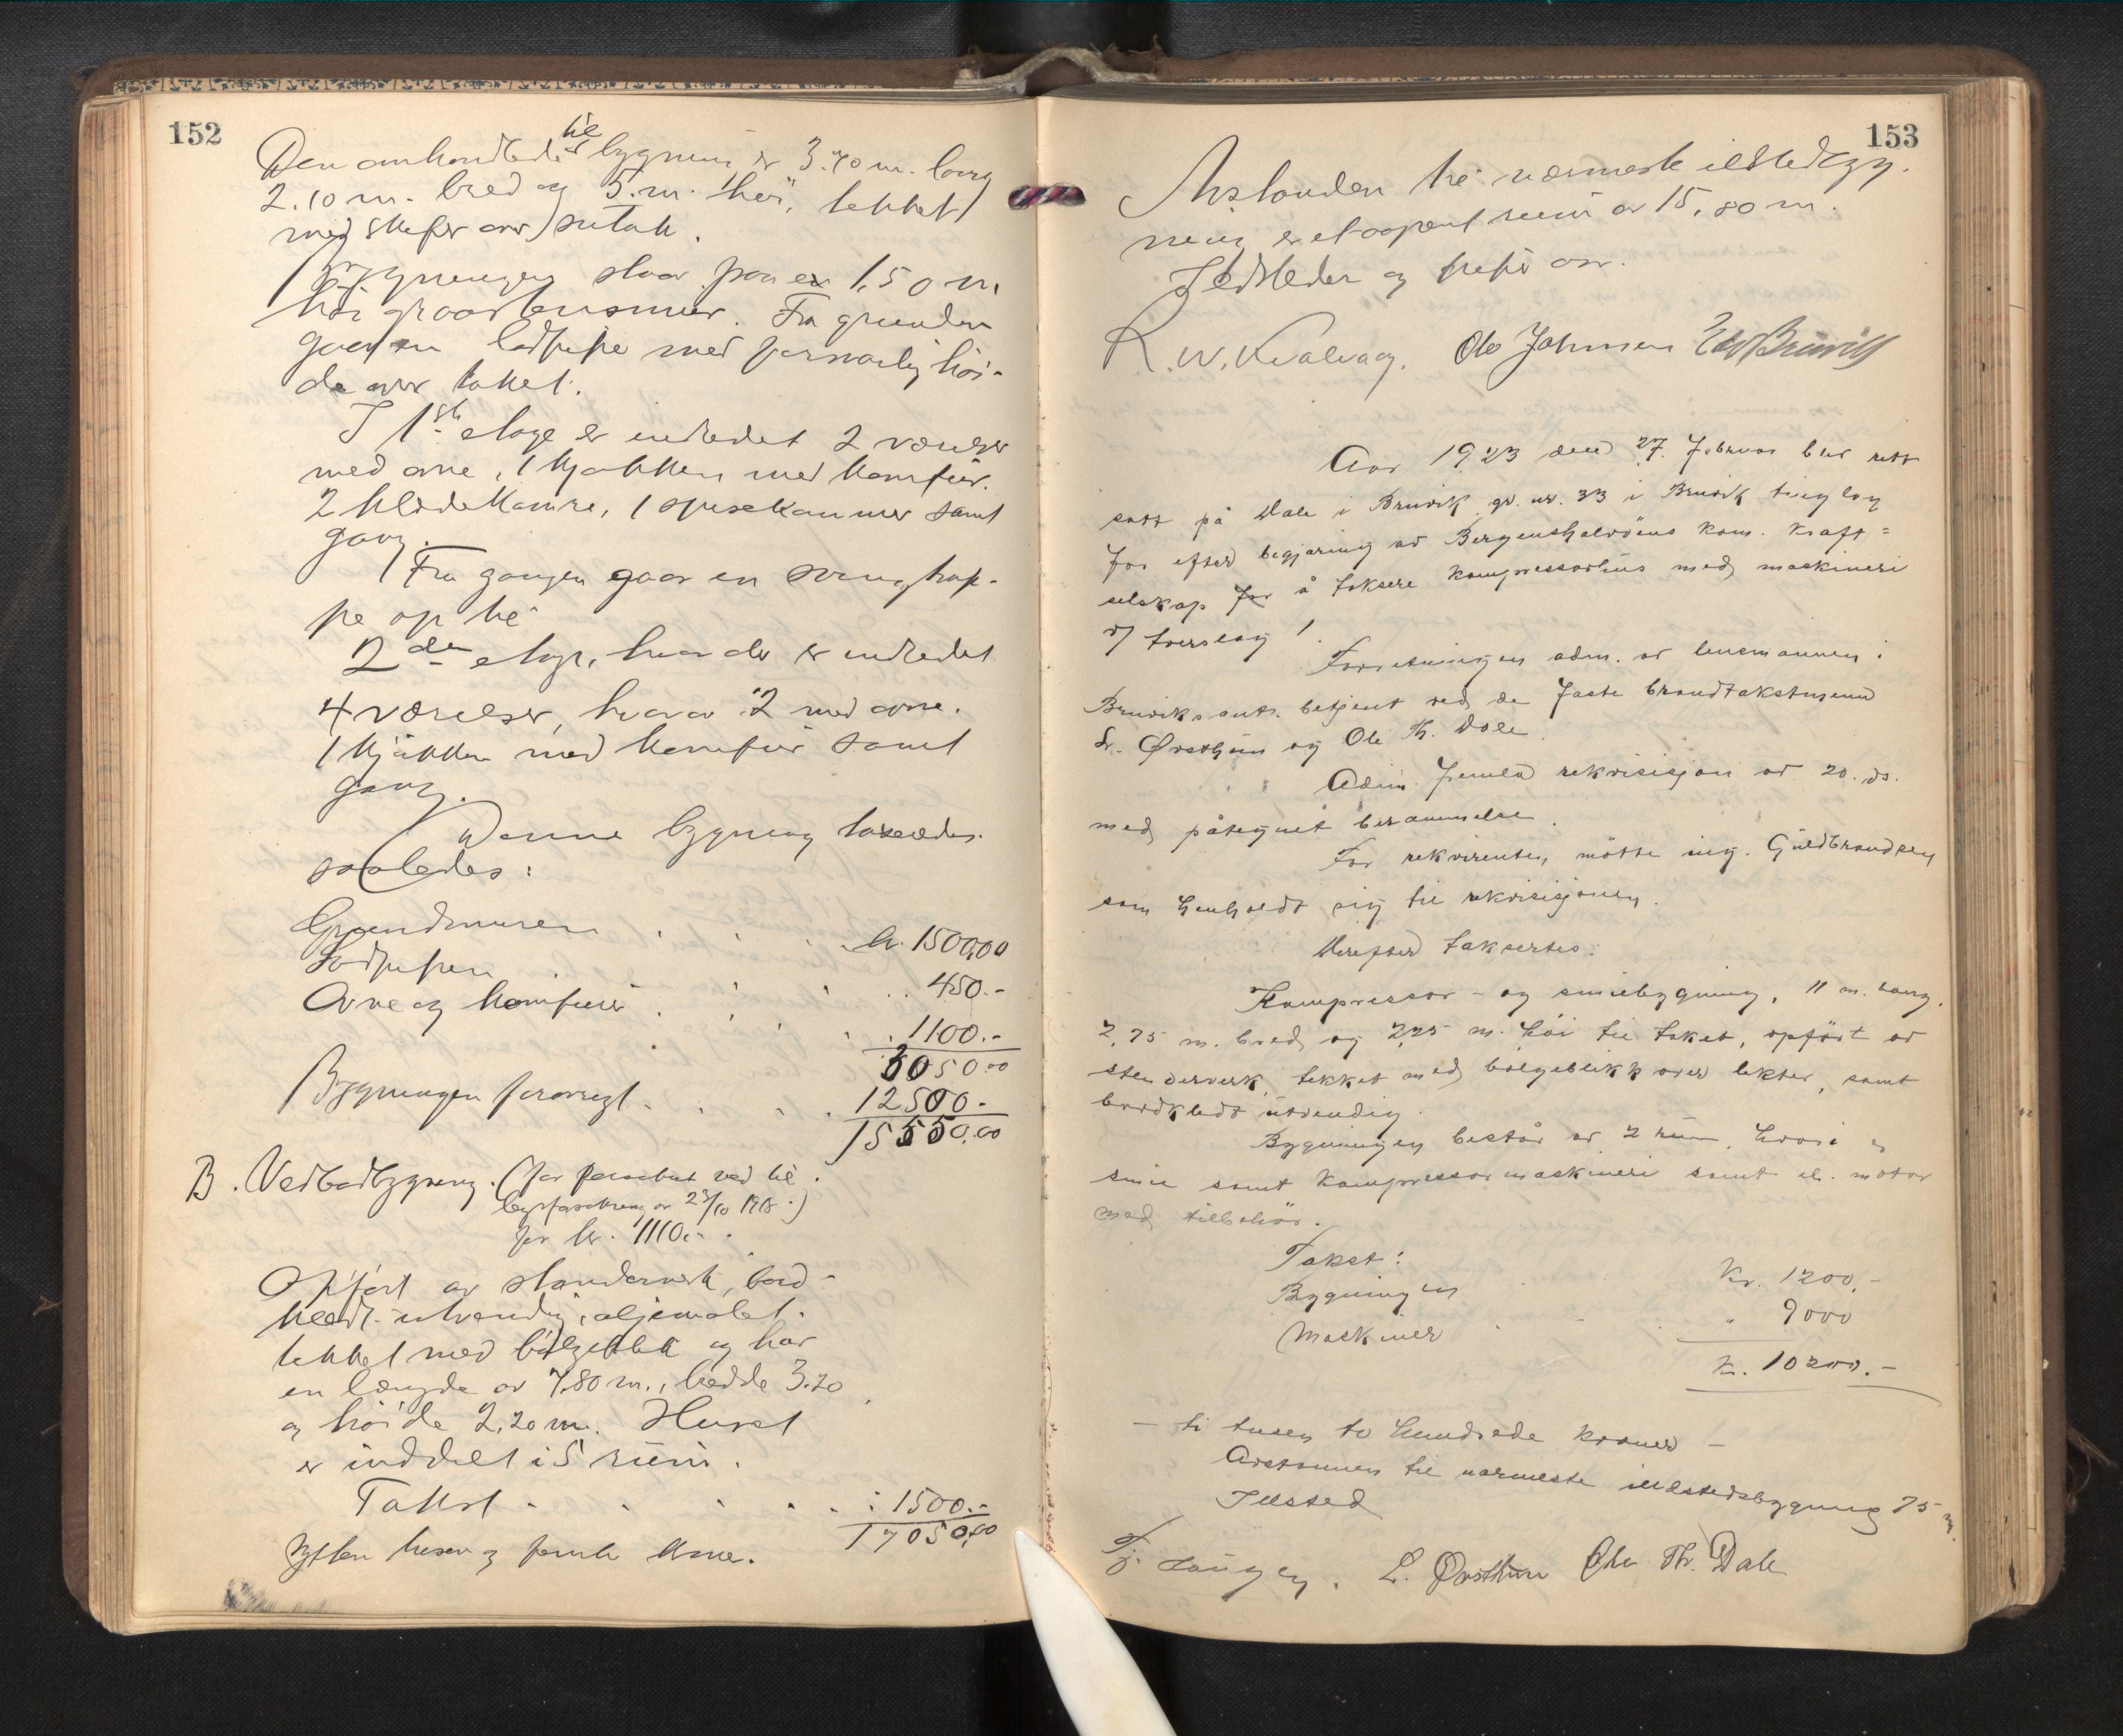 152
Den omhandlede til bygning er 3.70 m. lang
2.10 m. bred og 5. m. høi, tekket
med skifer over sutak.
Bygningen staar paa en 1,50 m.
høi graastensmur. Fra grunden
gaar en lodpipe med forsvarlig høi-
de over taket.
I 1ste etage er indredet 2 værelser
med ovne, 1 kjøkken med komfur.
2 klædekamre, 1 spisekammer samt
gang.
Fra gangen gaar en svingtrap-
pe op til
2den etage, hvor der er indredet
4 værelser, hvorav 2 med ovne.
1 kjøkken med komfur samt
gang.
Denne bygning taxeredes
saaledes:
Grundmuren . . . kr. 1500,00
Lodpipen . . . 450.-
Ovne og komfurer . . . 1100.-
3050.00
Bygningen forøvrigt . . . 12500.-
15550.00
B. Vedbodbygning. (før forsikret ved til
bygsforretning av 23/10 1918.)
for kr. 1110.-
Opført av standerverk, bord-
klædt utvendig, oljemalet.
tekket med bølgeblik og har
en længde av 7.80 m., bredde 3.20
og høide 2,20 m. Huset
er inddelt i 5 rum.
Takst . . . 1500.-
17050,00
Sytten tusen og femti kroner.
153
Avstanden til nærmeste ildstedbyg-
ning er et aapent rum av 15,80 m.
Ildsteder og piper o.s.v.
R. W. Kvalvag. Ole Johnsen
Aar 1923 den 27. februar blev rett
satt på Dale i Bruvik gr. nr. 33 i Bruvik tinglag
for efter begjæring av Bergenshalvøens kom. kraft=
selskap for å taksere kompressorhus med maskineri
v/ tverslag 1.
Forretningen adm. av lensmannen i
Bruvik, amts. betjent ved de faste brandtakstmenn
L. Ørsthun og Ole Th. Dale.
Adm. fremla rekvisisjon av 20. ds.
med påtegnet berammelse.
For rekvirenten møtte ing. Guldbrandsen
som henholdt sig til rekvisisjonen.
Derefter taksertes:
Kompressor- og smiebygning, 11 m. lang.
2,75 m. bred og 2,25 m. høi til taket, opført av
stenderverk, tekket med bølgeblikk over lekter, samt
bordkledt utvendig.
Bygningen består av 2 rum, hvori er
smie samt kompressormaskineri samt el. motor
med tilbehør.
Takst:
Bygningen . Kr. 1200.-
Maskiner . . . " 9000
Kr. 10200.-
- ti tusen to hundrede kroner -
Avstanden til nærmeste ildstedsbygning 75 m.
Ildsted
L. Ørsthun Ole Th. Dale